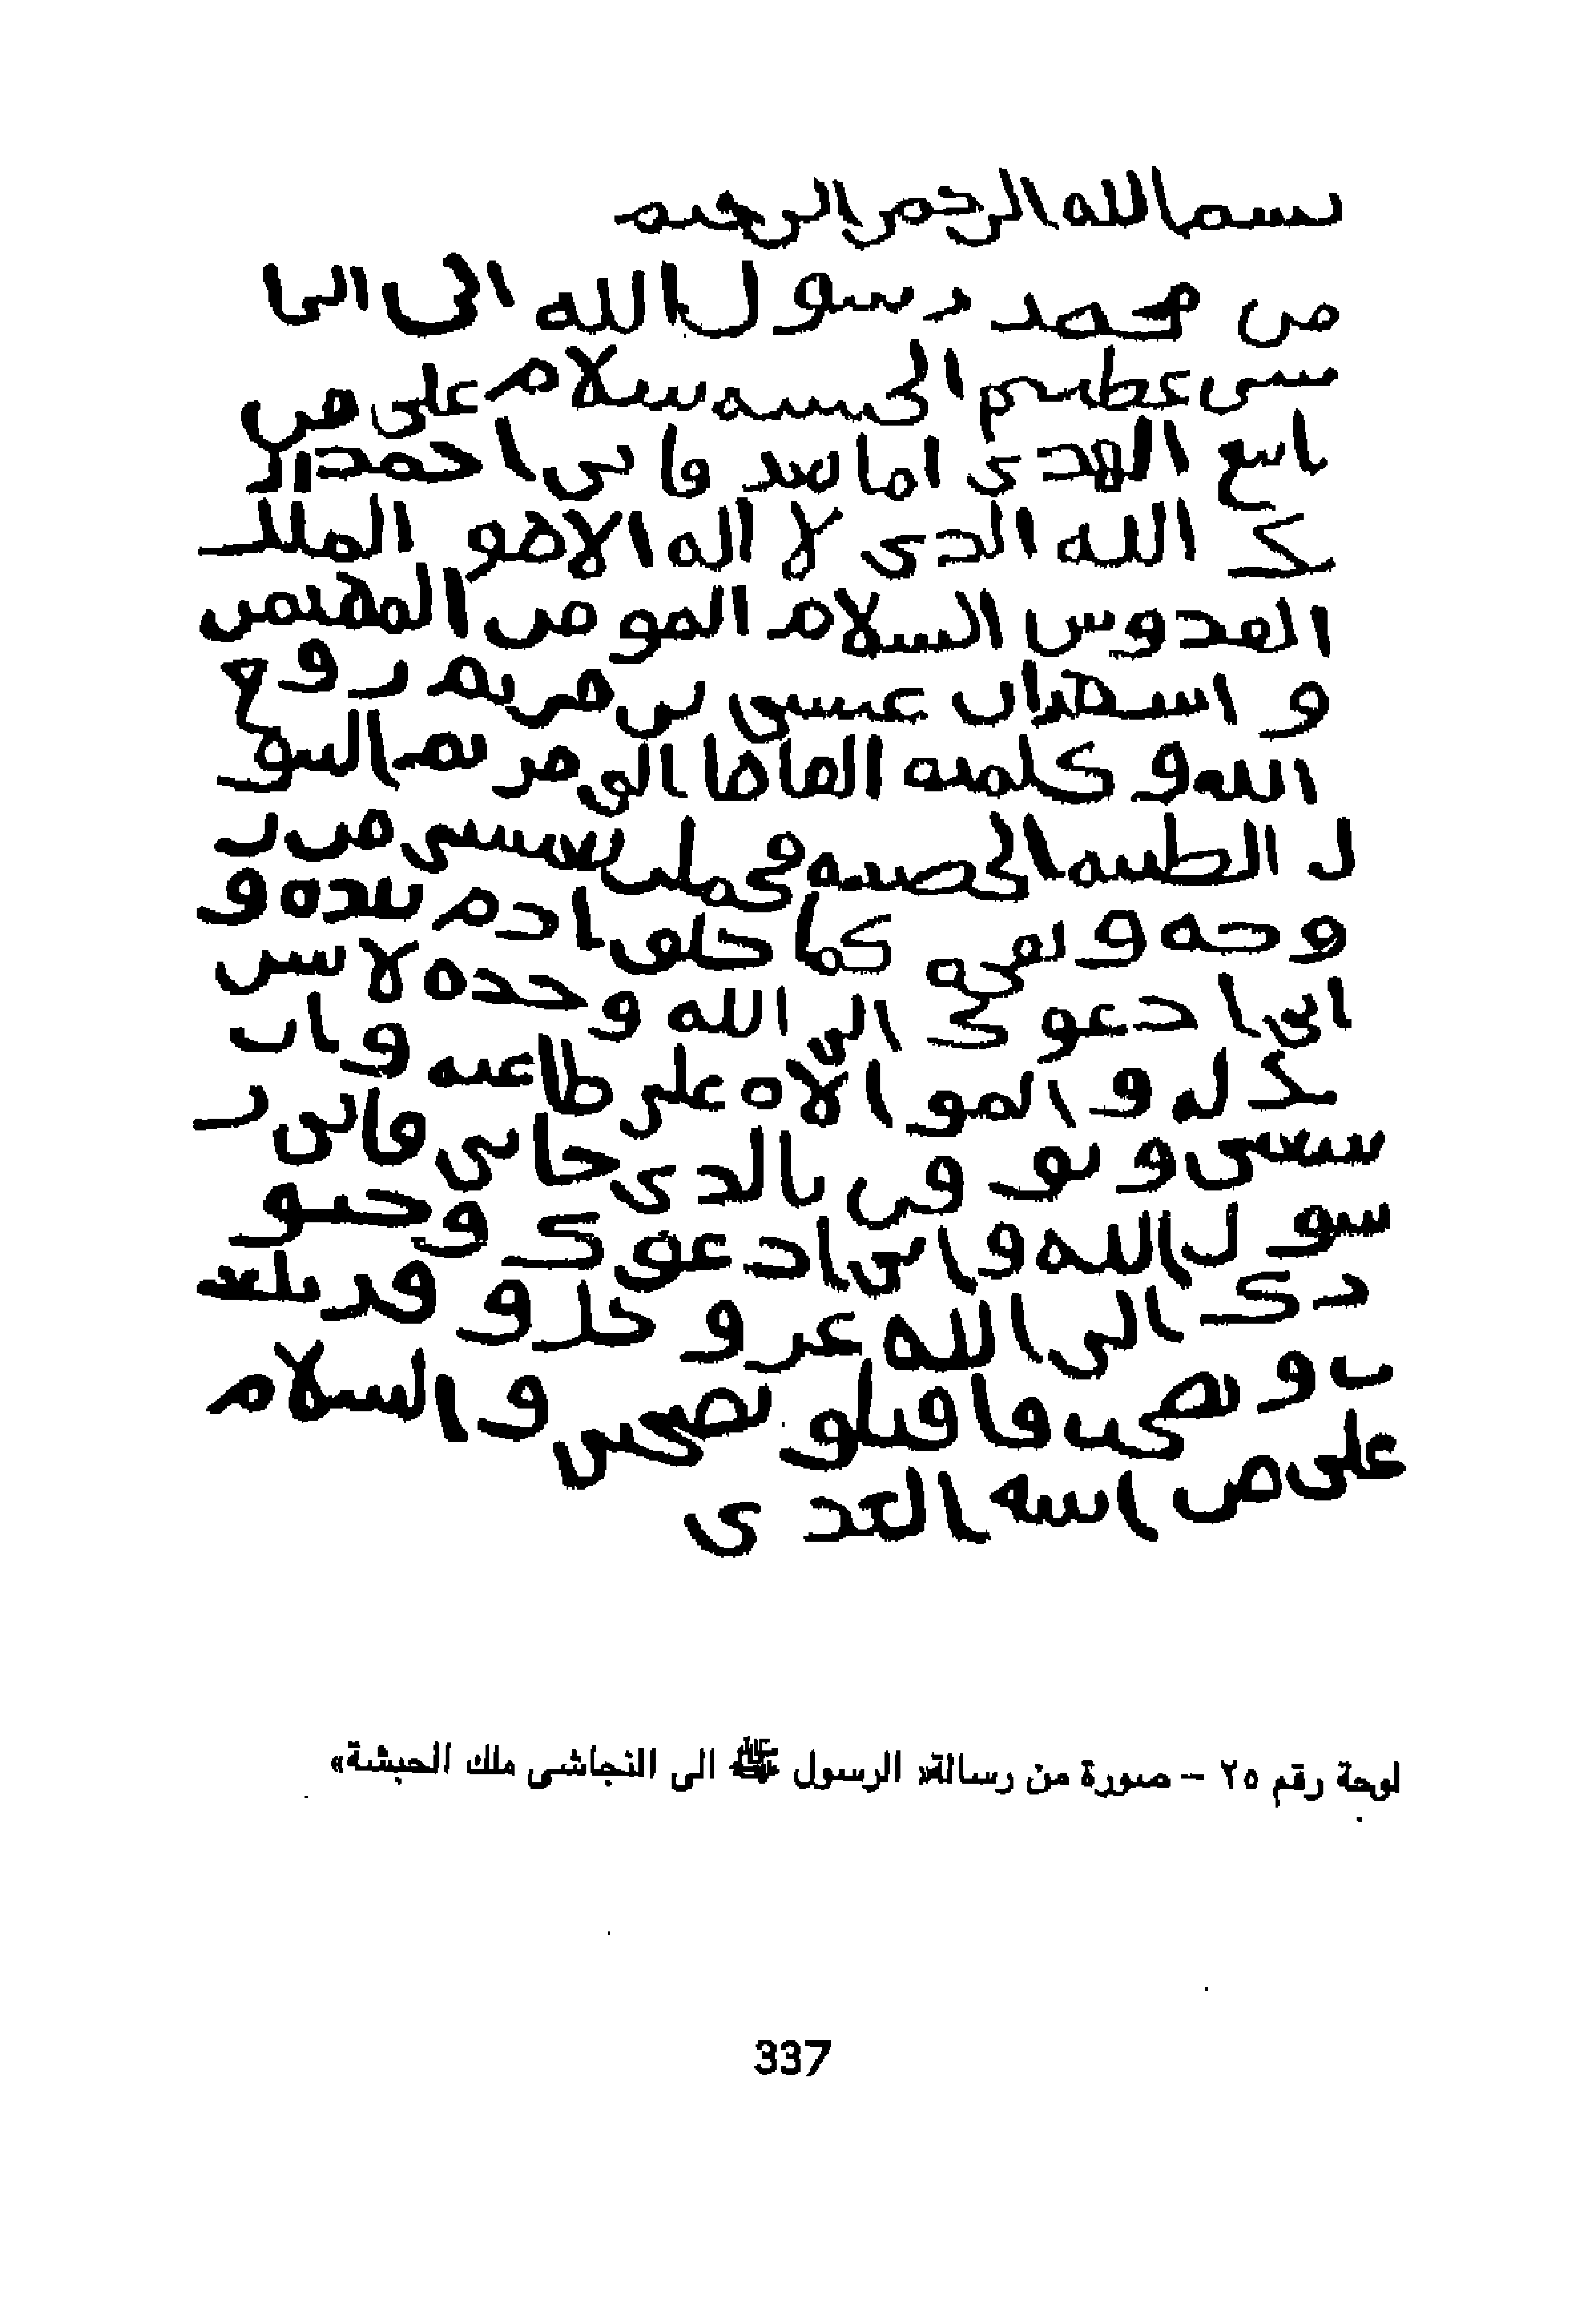 بسم الله الرحمن الرحيم
من محمد رسول الله الى النجا
شى عظيم الحبشة سلام على من
اتبع الهدى اما بعد فانى احمد ال
ك الله الذى لا اله الا هو الملك
القدوس السلام المومن المهيمن
و اشهد ان عيسى بن مريم روح
الله و كلمته القاها الى مريم البتو
ل الطيبة الحصينة فحملت بعيسى من ر
وحه و نفخه كما خلق ادم بيده و
انى ادعوك الى الله وحده لا شر
يك له و الموالاة على طاعته و ان
تتبعنى و توقن بالذى جانى فانى ر
سول الله و انى ادعوك و جنو
دك الى الله عز و جل و قد بلغت
و نصحت فاقبلو نصحى و السلام
على من اتبع الهدى
لوحة رقم ٢٥ – صورة من رسالة« الرسول ﷺ الى النجاشى ملك الحبشة»
337